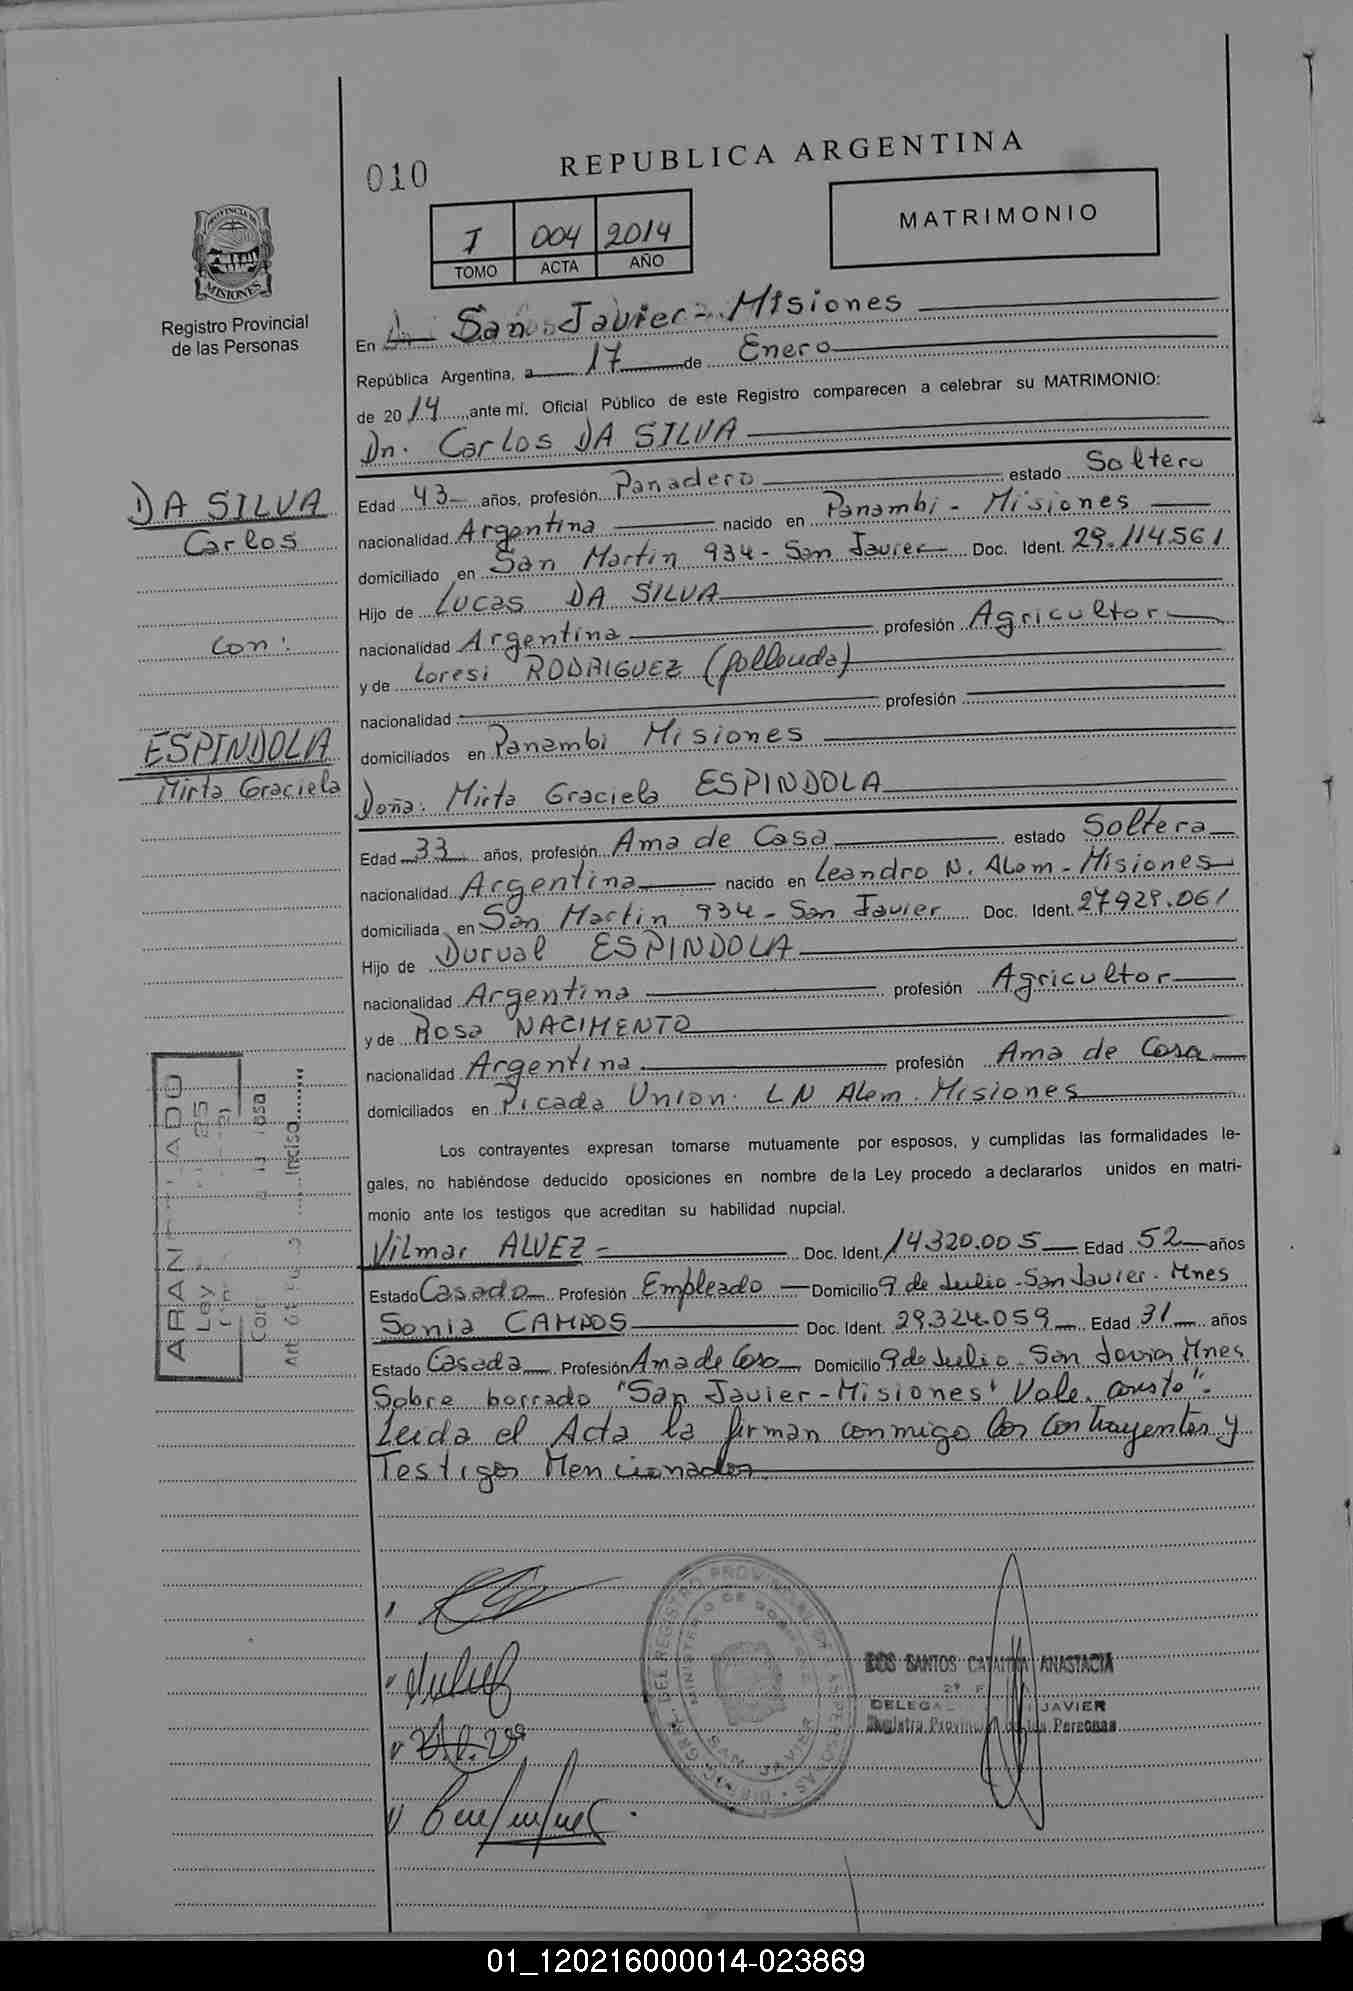 010
REPUBLICA ARGENTINA
I 004 2014
TOMO ACTA AÑO
MATRIMONIO
PROVINCIA DE
MISIONES
Registro Provincial
de las Personas
En San Javier - Misiones
República Argentina, a 17 de Enero
de 2014 ante mí. Oficial Público de este Registro comparecen a celebrar su MATRIMONIO:
Dn. Carlos DA SILVA
DA SILVA
Carlos
con:
ESPINDOLA
Mirta Graciela
Edad 43 años, profesión Panadero estado Soltero
nacionalidad Argentina nacido en Panambi - Misiones
domiciliado en San Martin 934 - San Javier Doc. Ident. 29.114.561
Hijo de Lucas DA SILVA
nacionalidad Argentina profesión Agricultor
y de Loresi RODRIGUEZ
nacionalidad profesión
domiciliados en Panambi Misiones
Doña: Mirta Graciela ESPINDOLA
Edad 33 años, profesión Ama de Casa estado Soltera
nacionalidad Argentina nacido en Leandro N. Alem - Misiones
domiciliada en San Martin 934 - San Javier Doc. Ident. 27929.061
Hijo de Durval ESPINDOLA
nacionalidad Argentina profesión Agricultor
y de Rosa NACIMENTO
nacionalidad Argentina profesión Ama de Casa
domiciliados en Picada Union. LN Alem. Misiones
Los contrayentes expresan tomarse mutuamente por esposos, y cumplidas las formalidades le-
gales, no habiéndose deducido oposiciones en nombre de la Ley procedo a declararlos unidos en matri-
monio ante los testigos que acreditan su habilidad nupcial.
Vilmar ALVEZ Doc. Ident. 14320.005 Edad 52 años
Estado Casado Profesión Empleado Domicilio 9 de Julio - San Javier. Mnes
Sonia CAMPOS Doc. Ident. 29.324.059 Edad 31 años
Estado Casada Profesión Ama de Casa Domicilio 9 de Julio - San Javier Mnes
Sobre borrado "San Javier - Misiones" Vale. Consto".
Leida el Acta la firman conmigo los contrayentes y
Testigos Mencionados
DOS SANTOS ANASTACIA
JAVIER
01_120216000014-023869